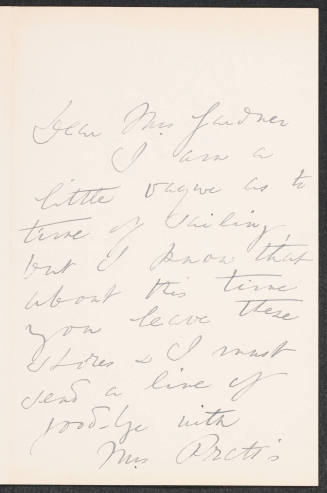 Dear Mrs Gardner
I am a
little vague as to
time of sailing,
but I know that
about this time
you leave these
shores & I must
send a line of
good-bye with
Mrs